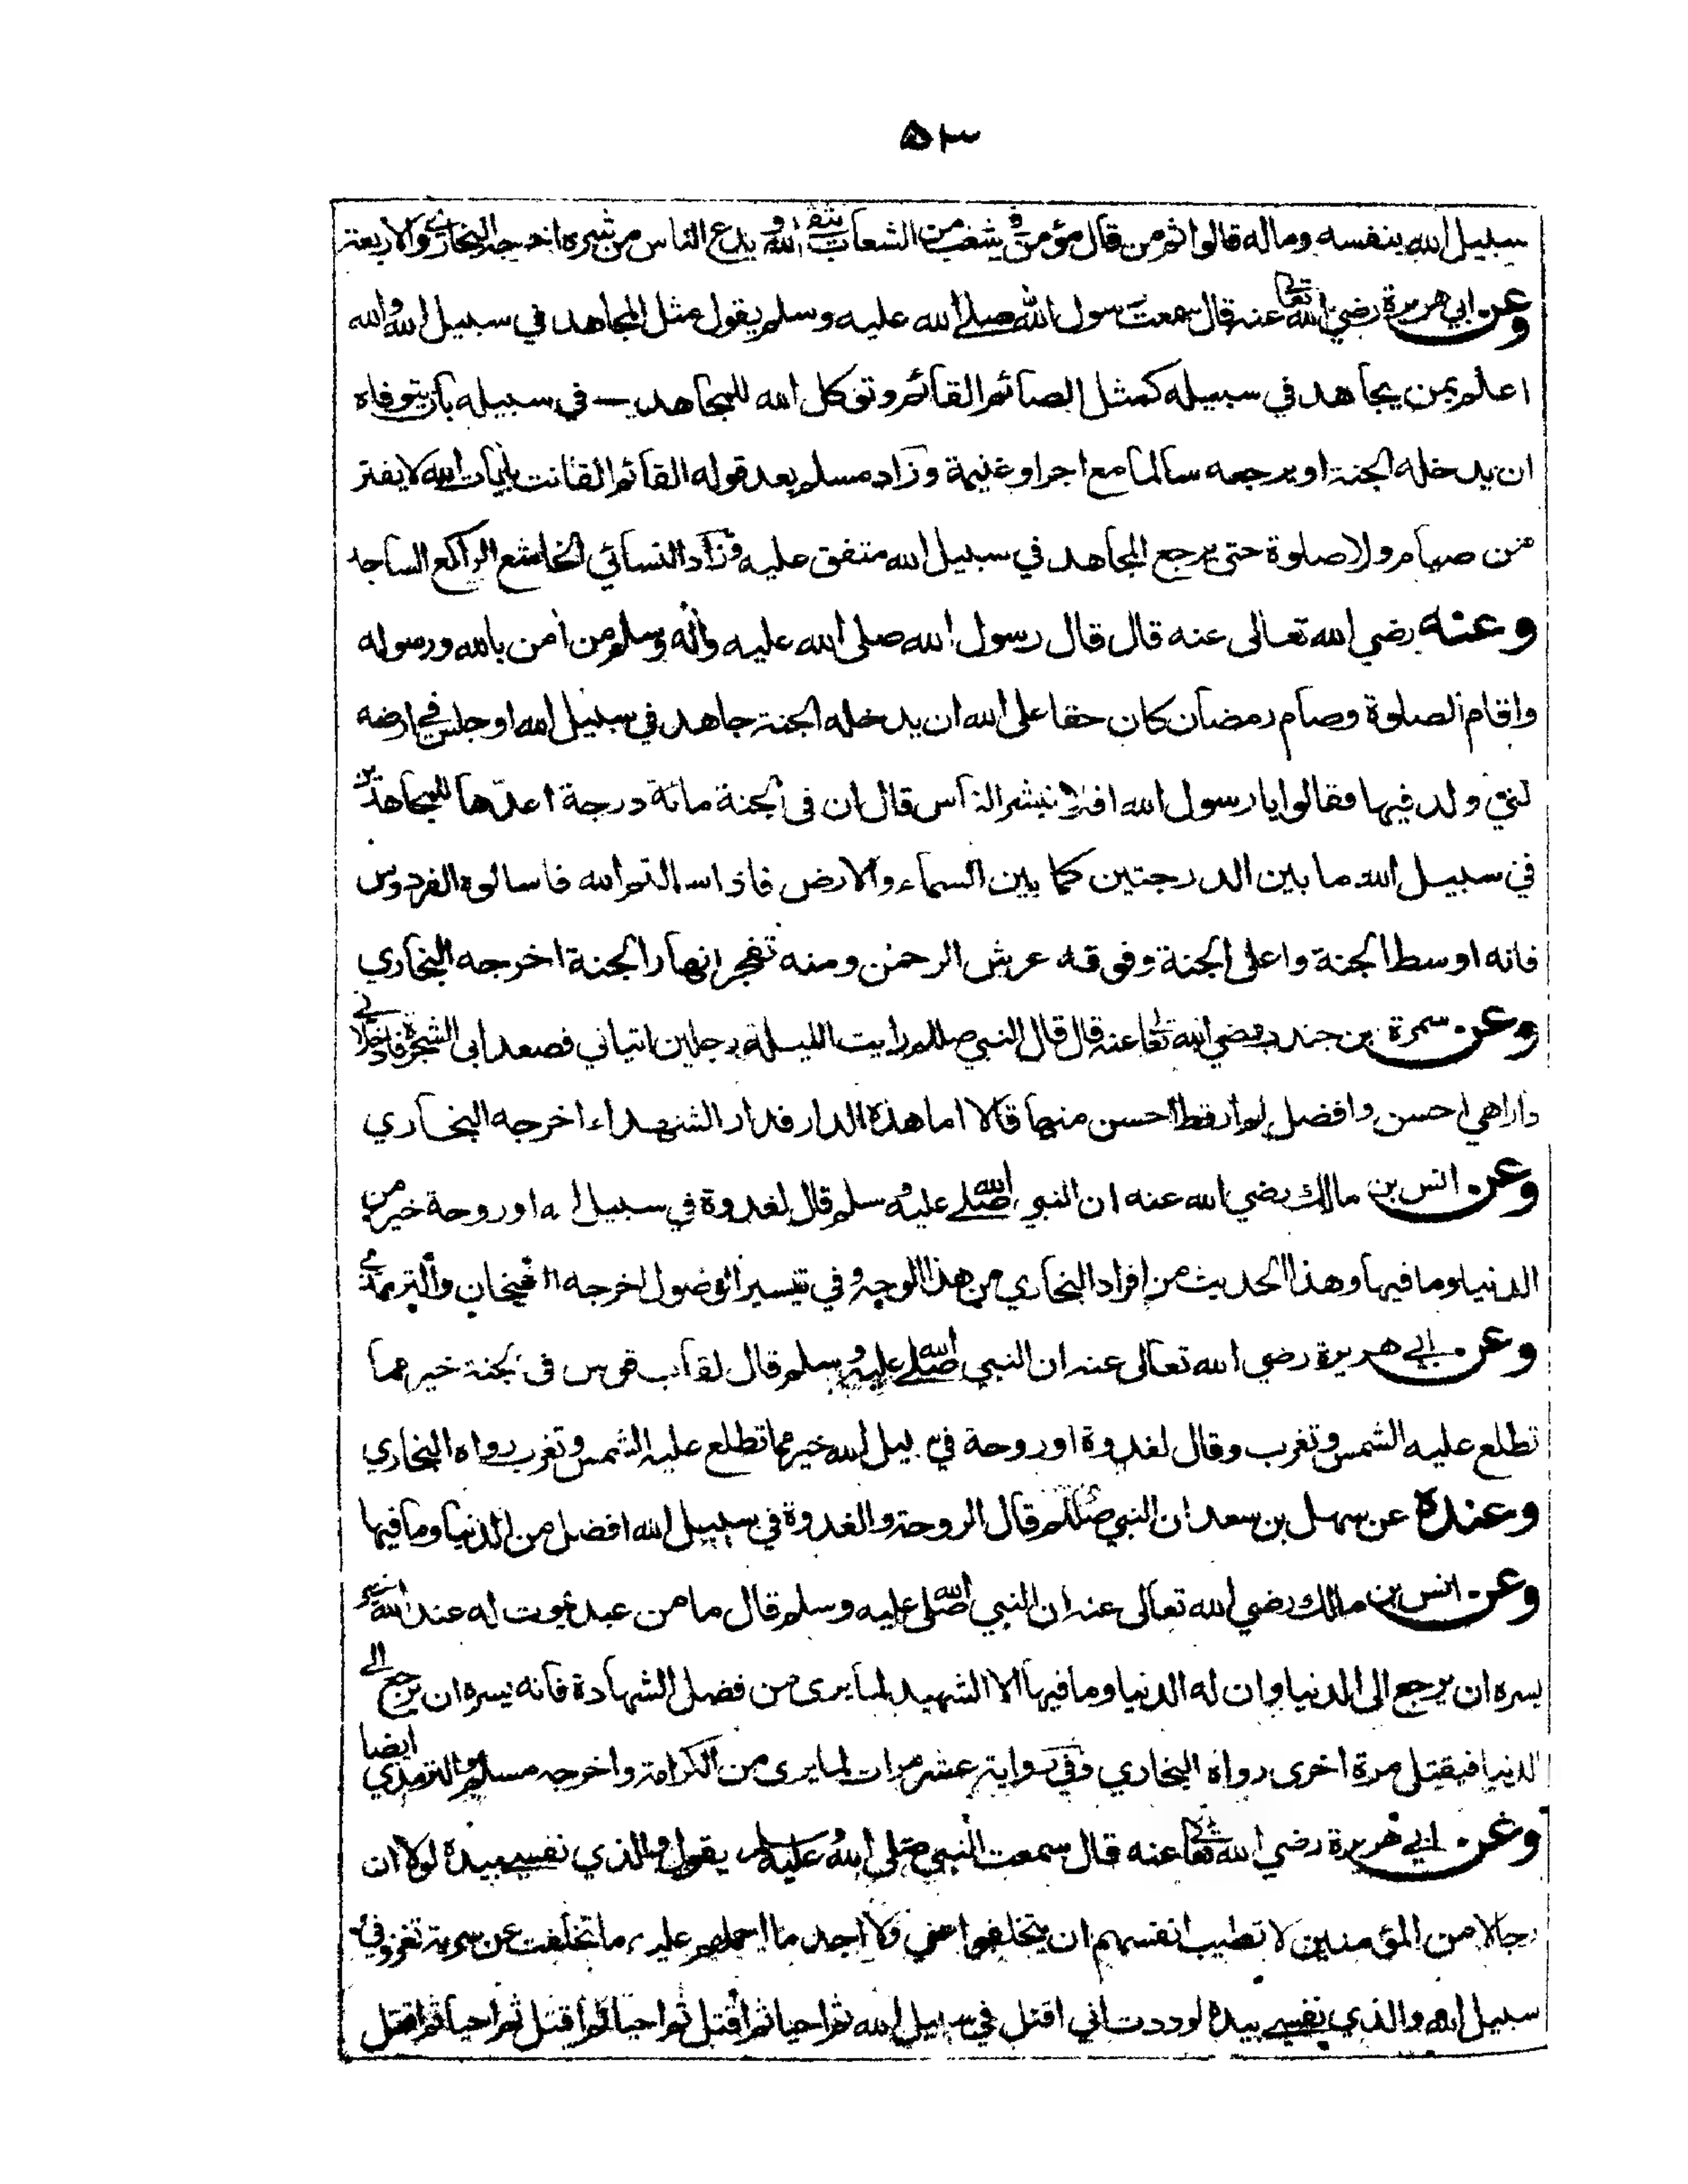 ٥٣
سبيل الله بنفسه وماله قالوا ثم من قال مؤمن في شعب من الشعاب يتقي الله ويدع الناس من شره اخرجه البخاري والاربعة
وعن ابي هريرة رضي الله تعالى عنه قال سمعت رسول الله صلے الله عليه وسلم يقول مثل المجاهد في سبيل الله والله
اعلم بمن يجاهد في سبيله كمثل الصائم القائم وتوكل الله للمجاهد في سبيله بان يتوفاه
ان يدخله الجنة او يرجعه سالما مع اجر او غنيمة وزاد مسلم بعد قوله القائم القانت بايات الله لا يفتر
من صيام ولا صلوة حتى يرجع المجاهد في سبيل الله متفق عليه وزاد النسائي الخاشع الراكع الساجد
وعنه رضي الله تعالى عنه قال قال رسول الله صلى الله عليه وأله وسلم من أمن بالله ورسوله
واقام الصلوة وصام رمضان كان حقا على الله ان يدخله الجنة جاهد في سبيل الله او جلس في ارضه
لتي ولد فيها فقالوا يا رسول الله افلا نبشر الناس قال ان فى الجنة مائة درجة اعدّها للمجاهدين
في سبيل الله ما بين الدرجتين كما بين السماء والارض فاذا سالتم الله فاسالوه الفردوس
فانه اوسط الجنة واعلى الجنة وفوقه عرش الرحمن ومنه تفجر انهار الجنة اخرجه البخاري
وعن سمرة بن جندب رضي الله تعا عنه قال قال النبي صللم رايت الليلة رجلين اتياني فصعدا بي الشجرة فادخلاني
دارا هي احسن وافضل لم ار قط احسن منها قالا اما هذه الدار فدار الشهداء اخرجه البخاري
وعن انس بن مالك رضي الله عنه ان النبي صلے الله عليه وسلم قال لغدوة في سبيل الله او روحة خير من
الدنيا وما فيها وهذا الحديث من افراد البخاري من هذا الوجه وفي تيسير الوصول اخرجه الشيخان والترمذي
وعن ابي هريرة رضي الله تعالى عنه ان النبي صلے الله عليه وسلم قال لقاب قوس فى الجنة خير مما
تطلع عليه الشمس وتغرب وقال لغدوة او روحة في سبيل الله خير مما تطلع عليه الشمس وتغرب رواه البخاري
وعنده عن سهل بن سعد ان النبي صللم قال الروحة والغدوة في سبيل الله افضل من الدنيا وما فيها
وعن انس بن مالك رضي الله تعالى عنه ان النبي صلى الله عليه وسلم قال ما من عبد يموت له عند الله خير
يسره ان يرجع الى الدنيا وان له الدنيا وما فيها الا الشهيد لما يرى من فضل الشهادة فانه يسره ان يرجع الے
الدنيا فيقتل مرة اخرى رواه البخاري وفي رواية عشر مرات لما يرى من الكرامة واخرجه مسلم والترمذي ايضا
وعن ابي هريرة رضي الله تعا عنه قال سمعت النبي صلى الله عليه وسلم يقول والذي نفسي بيده لولا ان
رجالا من المؤمنين لا تطيب انفسهم ان يتخلفوا عني ولا اجد ما احملهم عليه ما تخلفت عن سرية تغزو في
سبيل الله والذي نفسي بيده لوددت اني اقتل في سبيل الله ثم احيا ثم اقتل ثم احيا ثم اقتل ثم احيا ثم اقتل